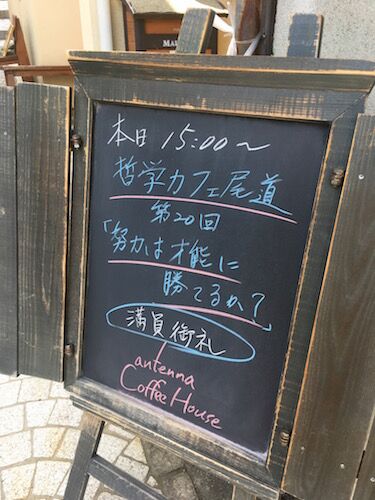 本日 15:00〜
哲学カフェ尾道
第20回
「努力は才能に
勝てるか?」
満員御礼
antenna
Coffee House